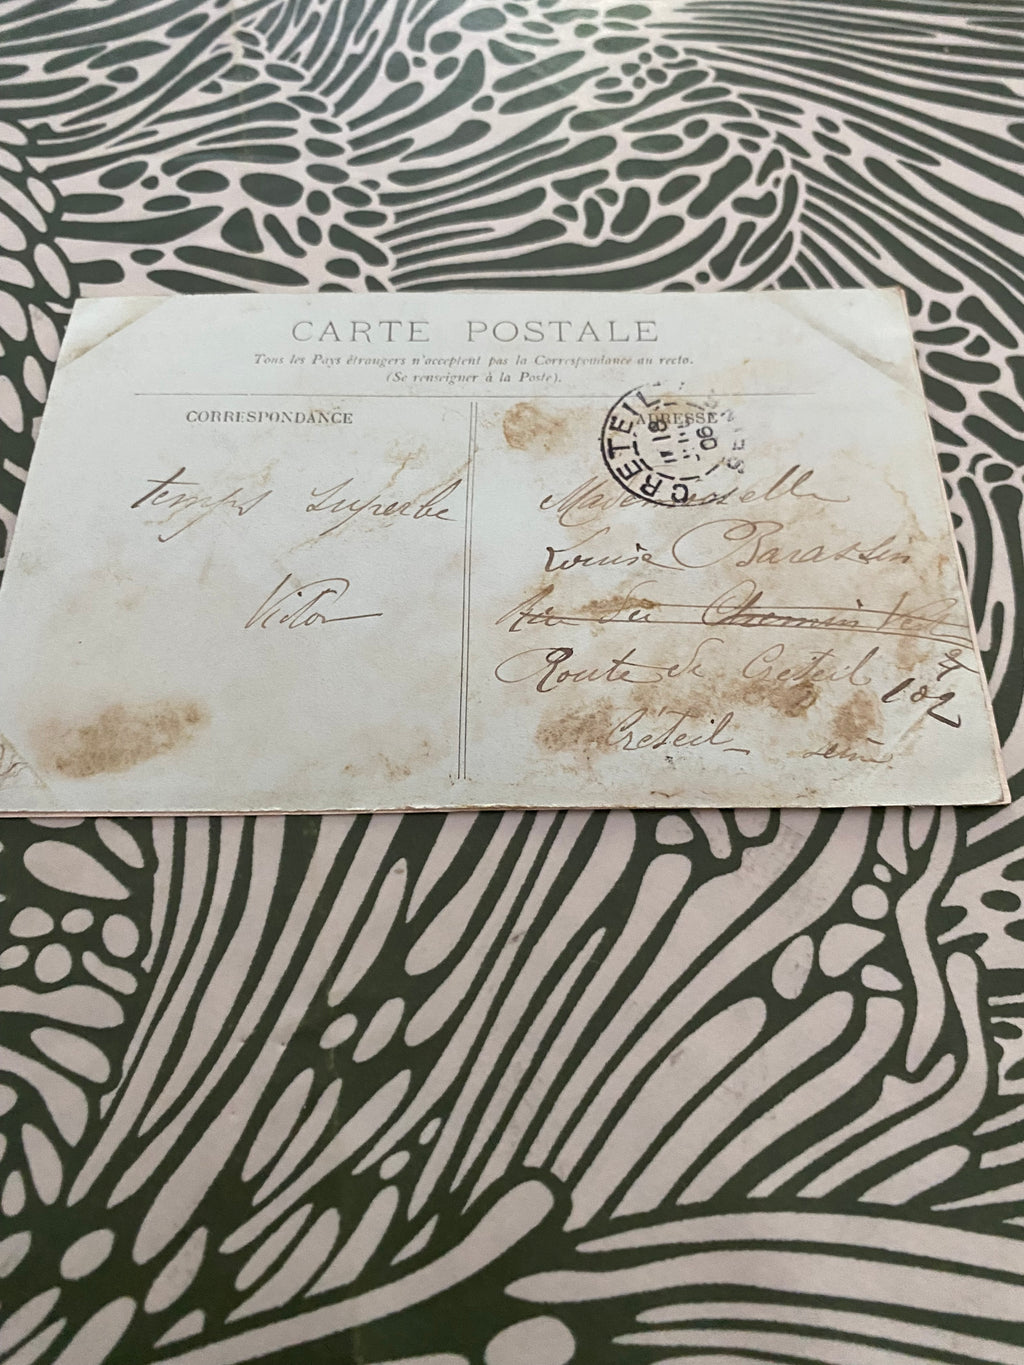 CARTE POSTALE
Tous les Pays étrangers n'acceptent pas la Correspondance au recto.
(Se renseigner à la Poste).
CORRESPONDANCE
ADRESSE
CRETEIL
06
temps superbe
Victor
Mademoiselle
Louise Barassin
du Chemin Vert
Route de Creteil
102
Créteil Seine